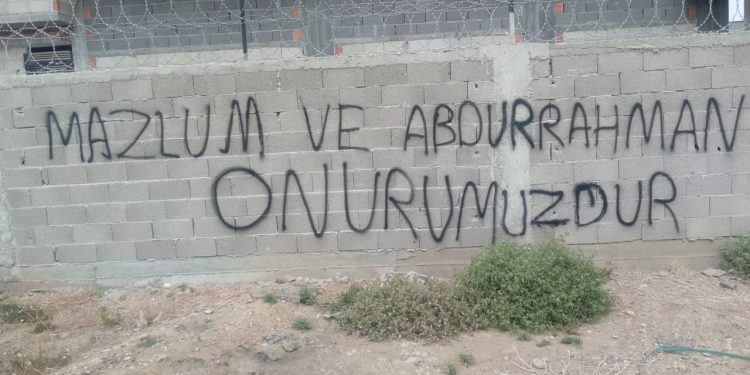 MAZLUM VE ABDURRAHMAN
ONURUMUZDUR